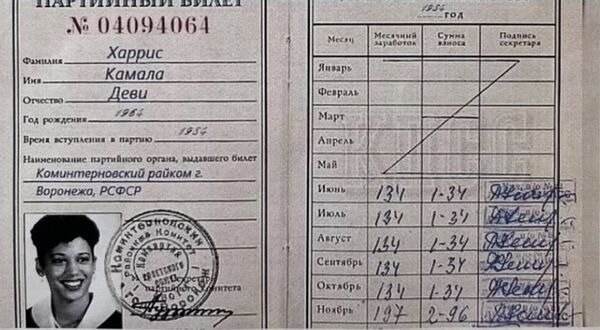 ПАРТИЙНЫЙ БИЛЕТ
№ 04094064
Фамилия Харрис
Имя Камала
Отчество Деви
Год рождения 1964
Время вступления в партию 1954
Наименование партийного органа, выдавшего билет
Коминтерновский райком г.
Воронежа, РСФСР
Коминтерновский
Районный Комитет
секретарь
партийного комитета
1954 ГОД
Месяц Месячный заработок Сумма взноса Подпись секретаря
Январь
Февраль
Март
Апрель
Май
Июнь 134 1-34
Июль 134 1-34
Август 134 1-34
Сентябрь 134 1-34
Октябрь 134 1-34
Ноябрь 197 2-96